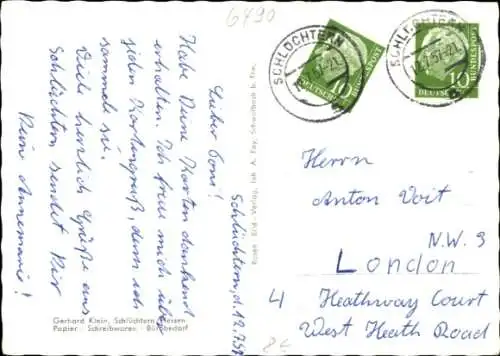 6490
SCHLÜCHTERN
DEUTSCHE BUNDESPOST
10
SCHLÜCHTERN
DEUTSCHE BUNDESPOST
10
Schlüchtern, d. 12.7.57
Lieber Tom!
Habe Deine Karten dankend
erhalten. Ich freue mich über
jeden Kartengruß, denn ich
sammele sie.
Viele herzlich Grüße aus
Schlüchtern sendet Dir
Deine Annemarie!
Gerhard Klein, Schlüchtern/Hessen
Papier - Schreibwaren - Bürobedarf
Herrn
Anton Voit
N.W. 3
London
4 Heathway Court
West Heath Road